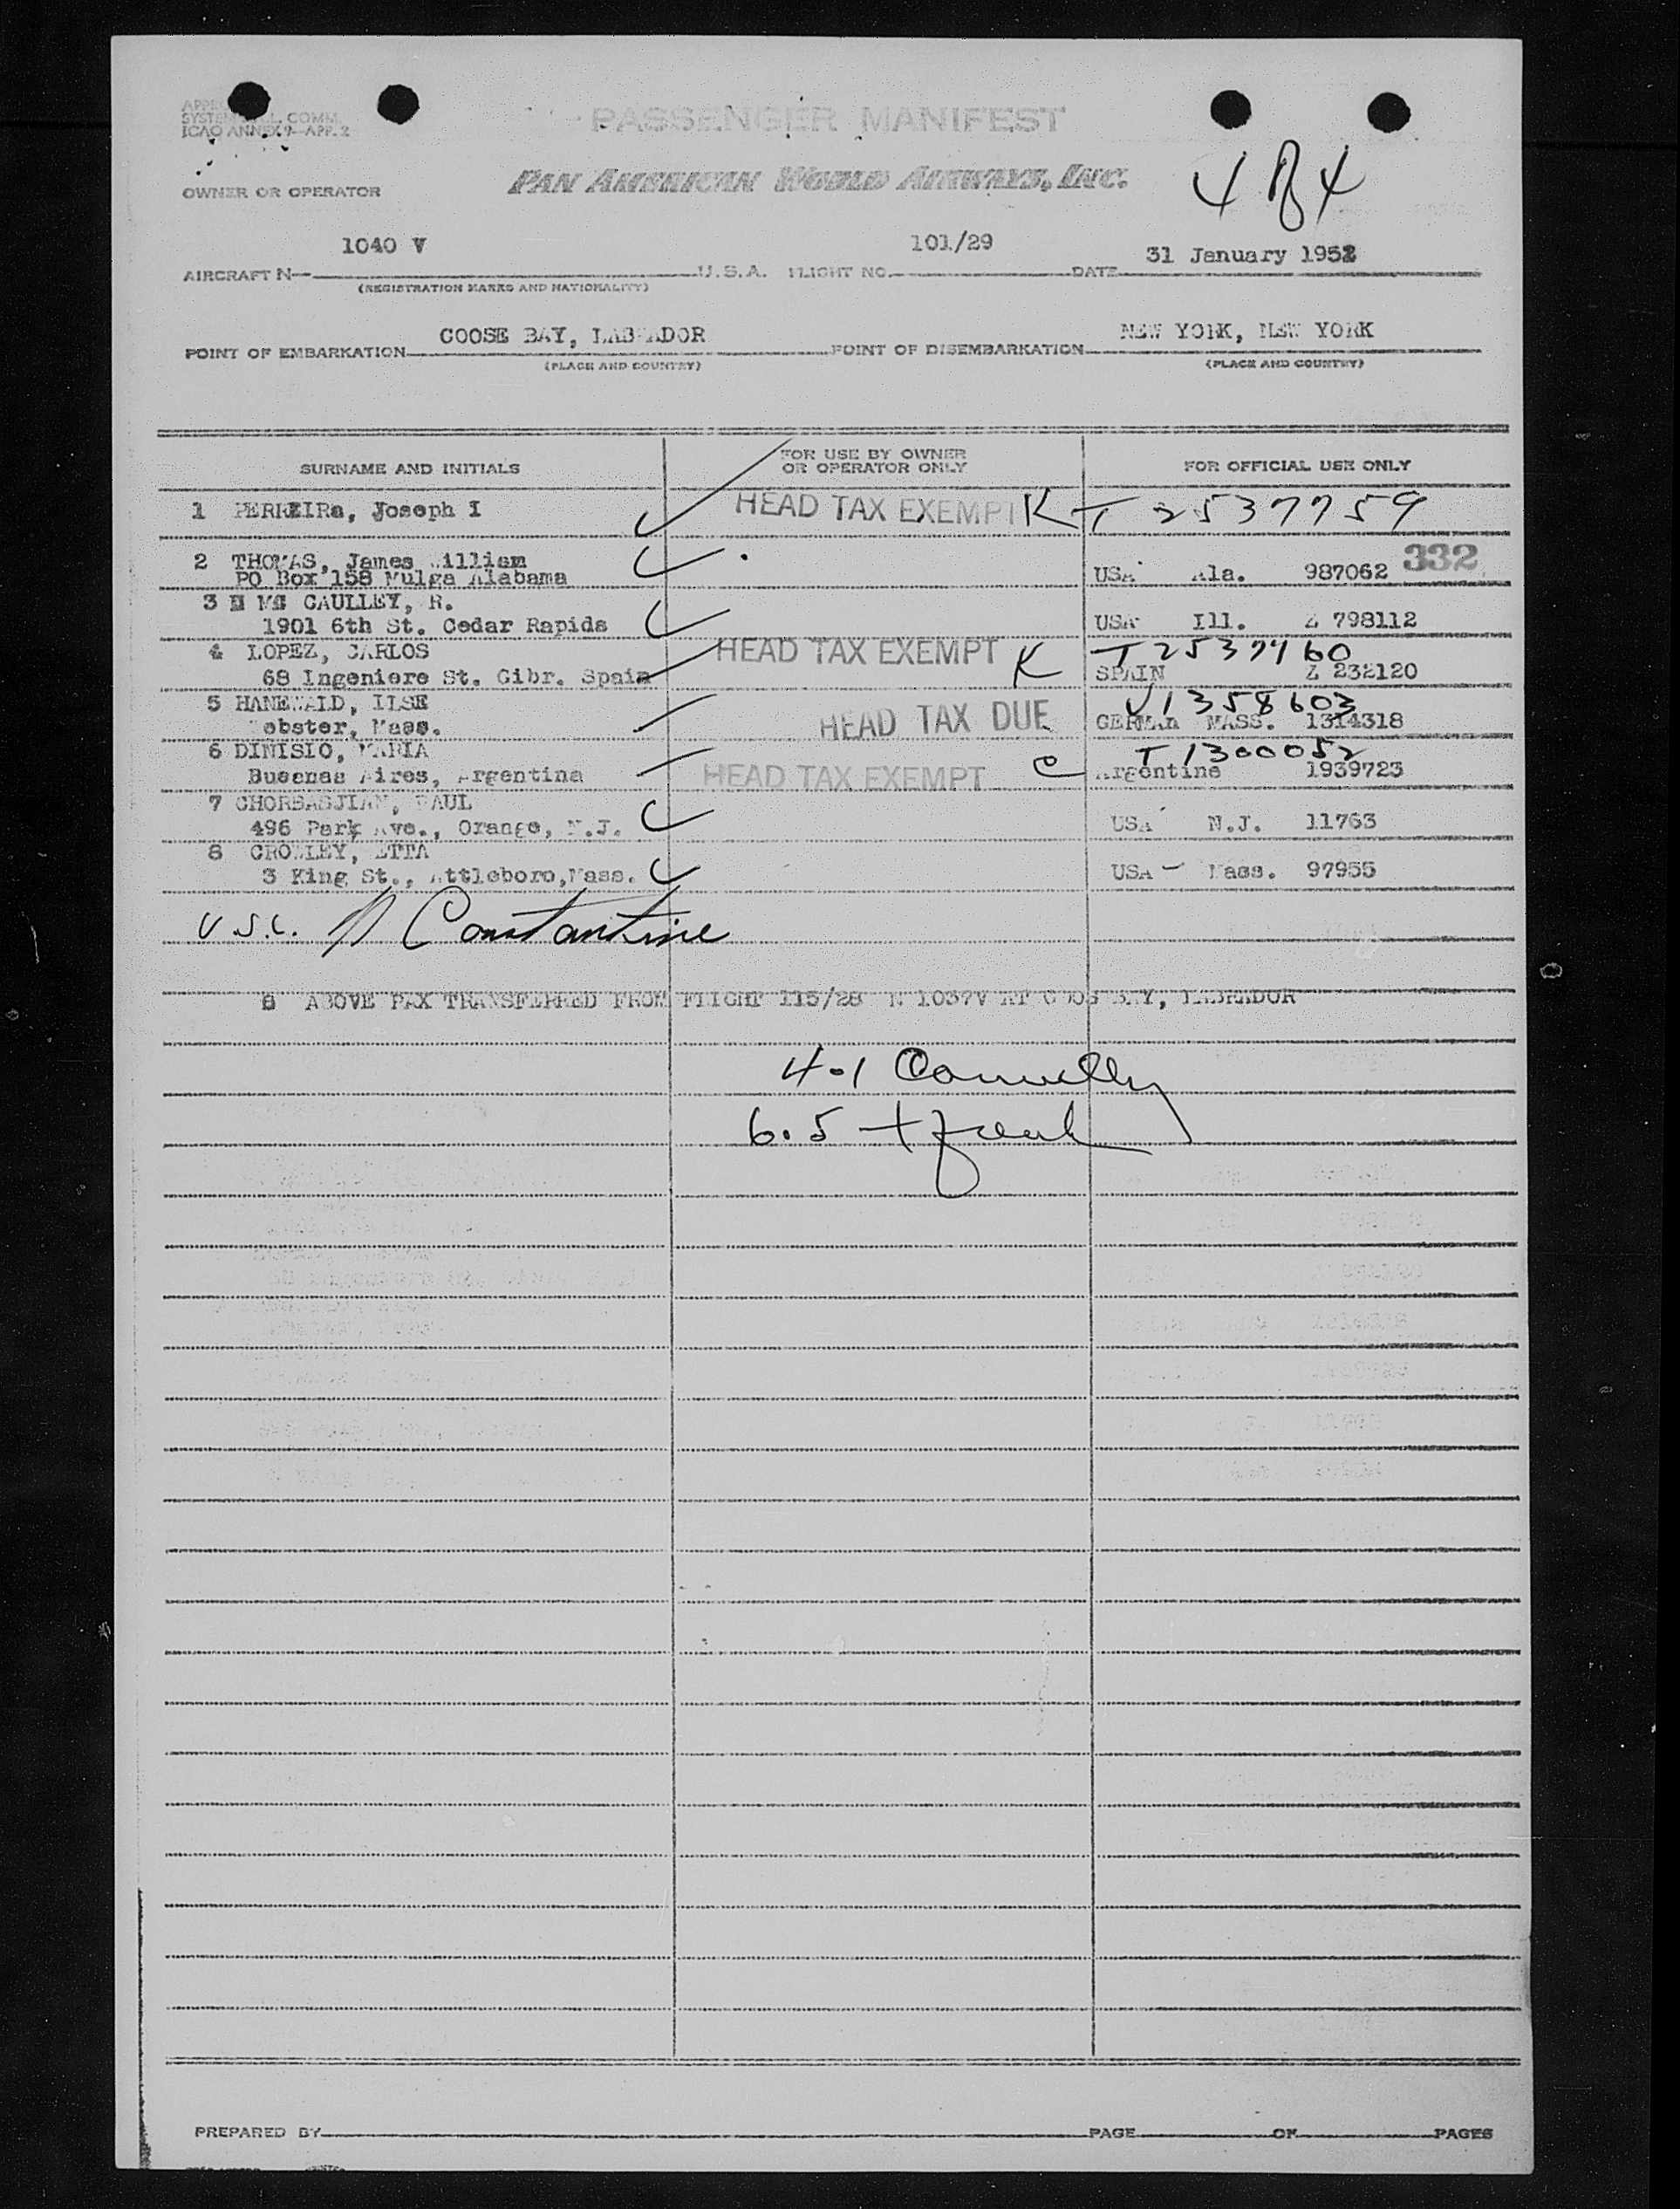 SYSTEM COMM.
ICAO ANNEX 9—APP. 2
PASSENGER MANIFEST
OWNER OR OPERATOR
PAN AMERICAN WORLD AIRWAYS, INC.
4 of 4
AIRCRAFT N— 1040 V U.S.A. FLIGHT NO. 101/29 DATE 31 January 1952
(REGISTRATION MARKS AND NATIONALITY)
POINT OF EMBARKATION GOOSE BAY, LABRADOR POINT OF DISEMBARKATION NEW YORK, NEW YORK
(PLACE AND COUNTRY) (PLACE AND COUNTRY)
SURNAME AND INITIALS FOR USE BY OWNER OR OPERATOR ONLY FOR OFFICIAL USE ONLY
1 PERREIRa, Joseph I HEAD TAX EXEMPT K T 2537759
332
2 THOMAS, James William
PO Box 158 Mulga Alabama USA Ala. 987062
3 Mc CAULLEY, R.
1901 6th St. Cedar Rapids USA Ill. Z 798112
4 LOPEZ, CARLOS HEAD TAX EXEMPT K T 2537760
68 Ingeniero St. Gibr. Spain SPAIN Z 232120
5 HANEWALD, ILSE HEAD TAX DUE V1358603
Webster, Mass. GERMAn MASS. 1314318
6 DINISIO, MARIA HEAD TAX EXEMPT C T 1300052
Buesnas Aires, Argentina Argentine 1939723
7 CHORBASJIAN, PAUL
496 Park Ave., Orange, N.J. USA N.J. 11763
8 CROWLEY, ETTA
3 King St., Attleboro, Mass. USA Mass. 97955
U.S.C. Constantine
8 ABOVE PAX TRANSFERRED FROM FLIGHT 115/28 N 1037V AT GOOS BAY, LABRADOR
4.1 Connelly
6.5
PREPARED BY PAGE OF PAGES